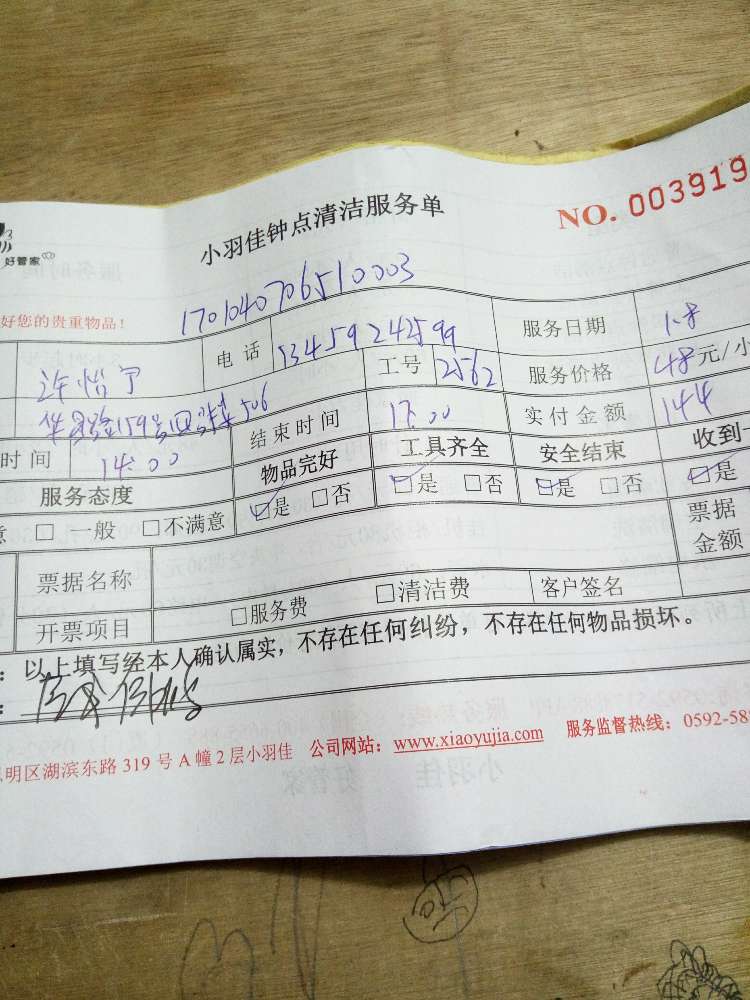 小羽佳钟点清洁服务单
NO. 003919
好管家
170104070651 0003
好您的贵重物品！
许怡宁 电话 13459242599 服务日期 1.8
159号 506 工号 2562 服务价格 48元/小
时间 14:00 结束时间 17:00 实付金额 144
服务态度 物品完好 工具齐全 安全结束 收到
意 □ 一般 □不满意 ☑是 □否 ☑是 □否 ☑是 □否 ☑是
票据名称 票据金额
开票项目 □服务费 □清洁费 客户签名
：以上填写经本人确认属实，不存在任何纠纷，不存在任何物品损坏。
明区湖滨东路 319 号 A 幢 2 层小羽佳 公司网站：www.xiaoyujia.com 服务监督热线：0592-58
小羽佳 好管家